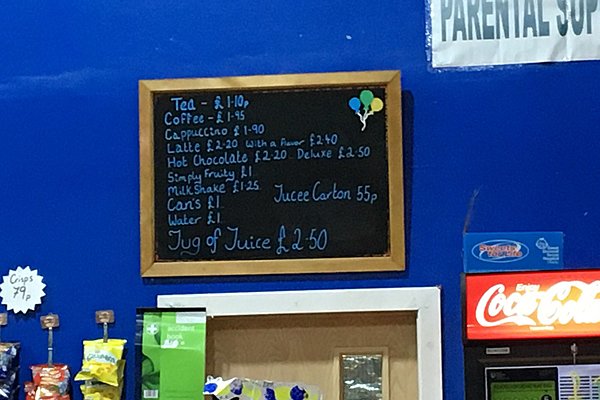 PARENTAL SUP
Tea - £1·10p
Coffee - £1·95
Cappuccino £1·90
Latte £2·20 With a flavor £2·40
Hot Chocolate £2·20 Deluxe £2·50
Simply Fruity £1.
MilkShake £1·25
Jucee Carton 55p
Can's £1.
Water £1.
Jug of Juice £2·50
Crisps
79p
accident
book
Enjoy
Coca-Cola